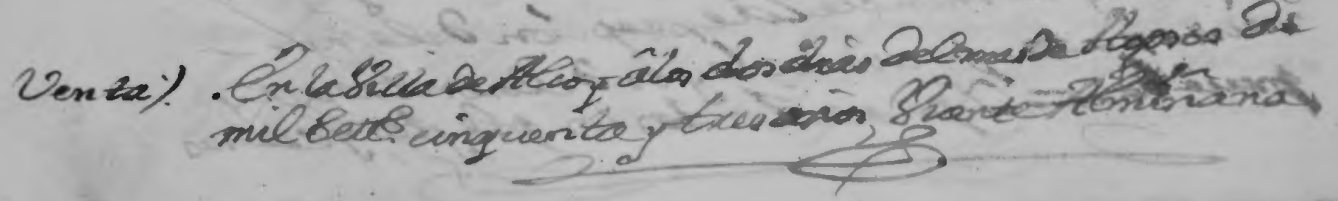 Venta) . En la Villa de Alcoy â los dos dias del mes de Agosto de
mil Sett.s cinquenta y tres años, Vicente Almiñana